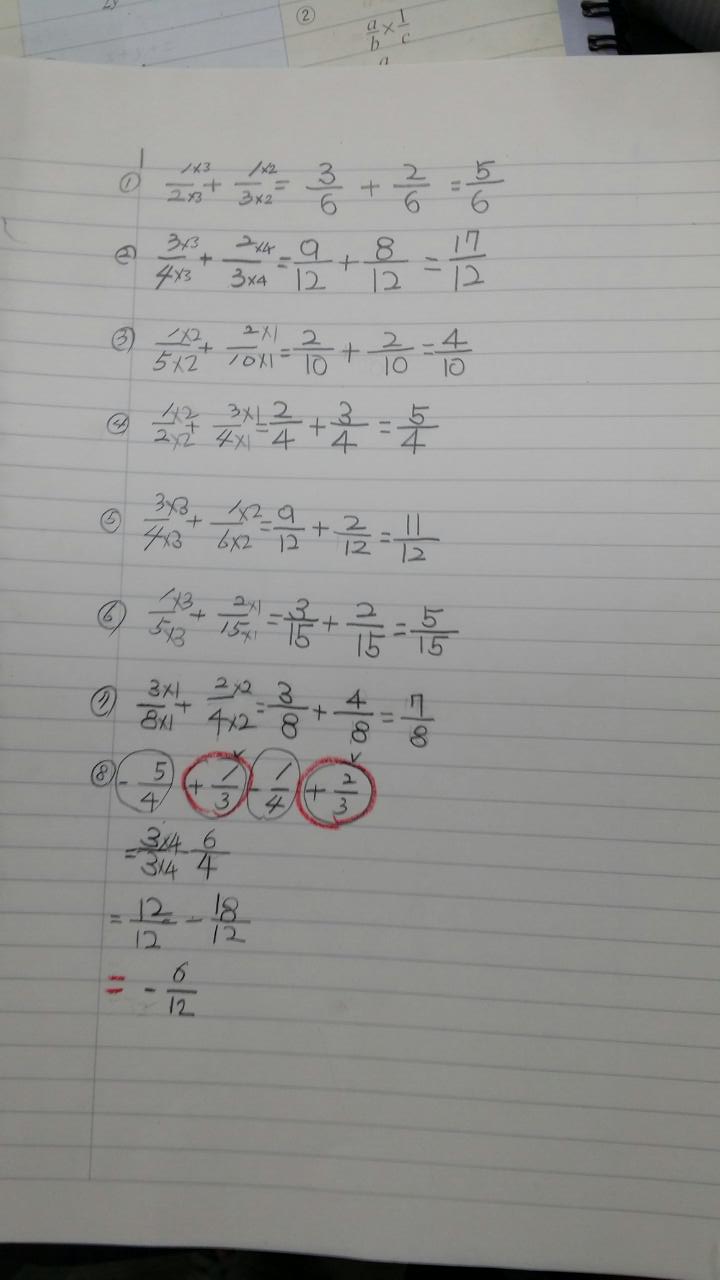 ②
a/b × 1/c
① (1×3)/(2×3) + (1×2)/(3×2) = 3/6 + 2/6 = 5/6
② (3×3)/(4×3) + (2×4)/(3×4) = 9/12 + 8/12 = 17/12
③ (1×2)/(5×2) + (2×1)/(10×1) = 2/10 + 2/10 = 4/10
④ (1×2)/(2×2) + (3×1)/(4×1) = 2/4 + 3/4 = 5/4
⑤ (3×3)/(4×3) + (1×2)/(6×2) = 9/12 + 2/12 = 11/12
⑥ (1×3)/(5×3) + (2×1)/(15×1) = 3/15 + 2/15 = 5/15
⑦ (3×1)/(8×1) + (2×2)/(4×2) = 3/8 + 4/8 = 7/8
⑧ - 5/4 + 1/3 - 1/4 + 2/3
= (3×4)/(3×4) - 6/4
= 12/12 - 18/12
= - 6/12